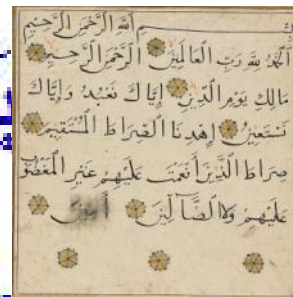 بسم الله الرحمن الرحيم
الحمد لله رب العالمين الرحمن الرحيم
مالك يوم الدين إياك نعبد وإياك
نستعين إهدنا الصراط المستقيم
صراط الذين أنعمت عليهم غير المغضوب
عليهم ولا الضالين أمين